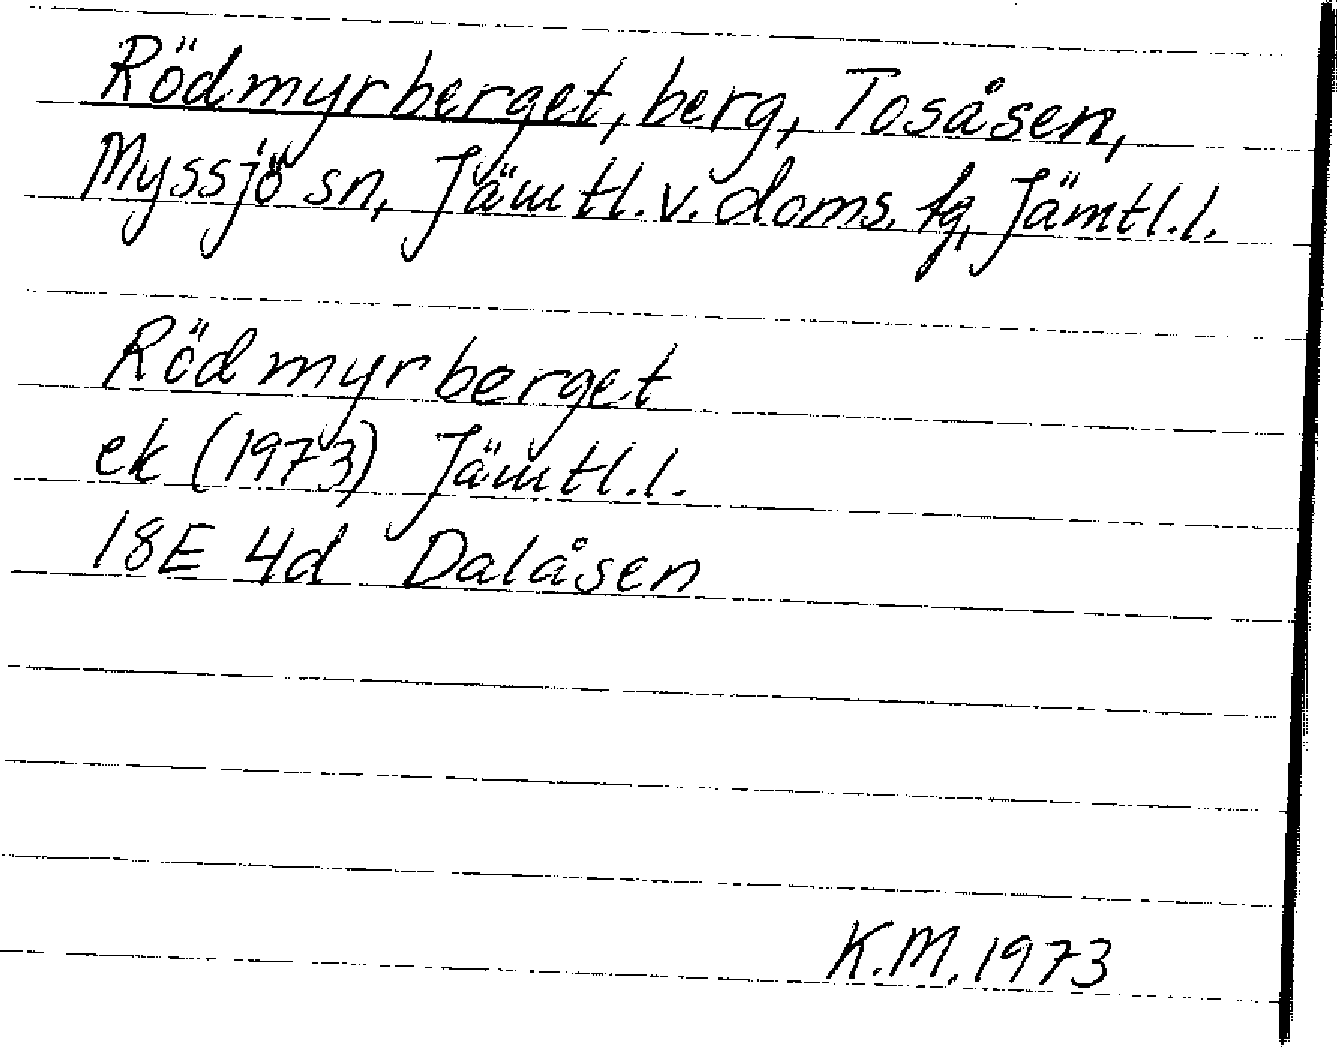 Rödmyrberget, berg, Tosåsen,
Myssjö sn, Jämtl. v. doms. fg, Jämtl. l.
Rödmyrberget
ek (1973) Jämtl. l.
18E 4d Dalåsen
K.M. 1973